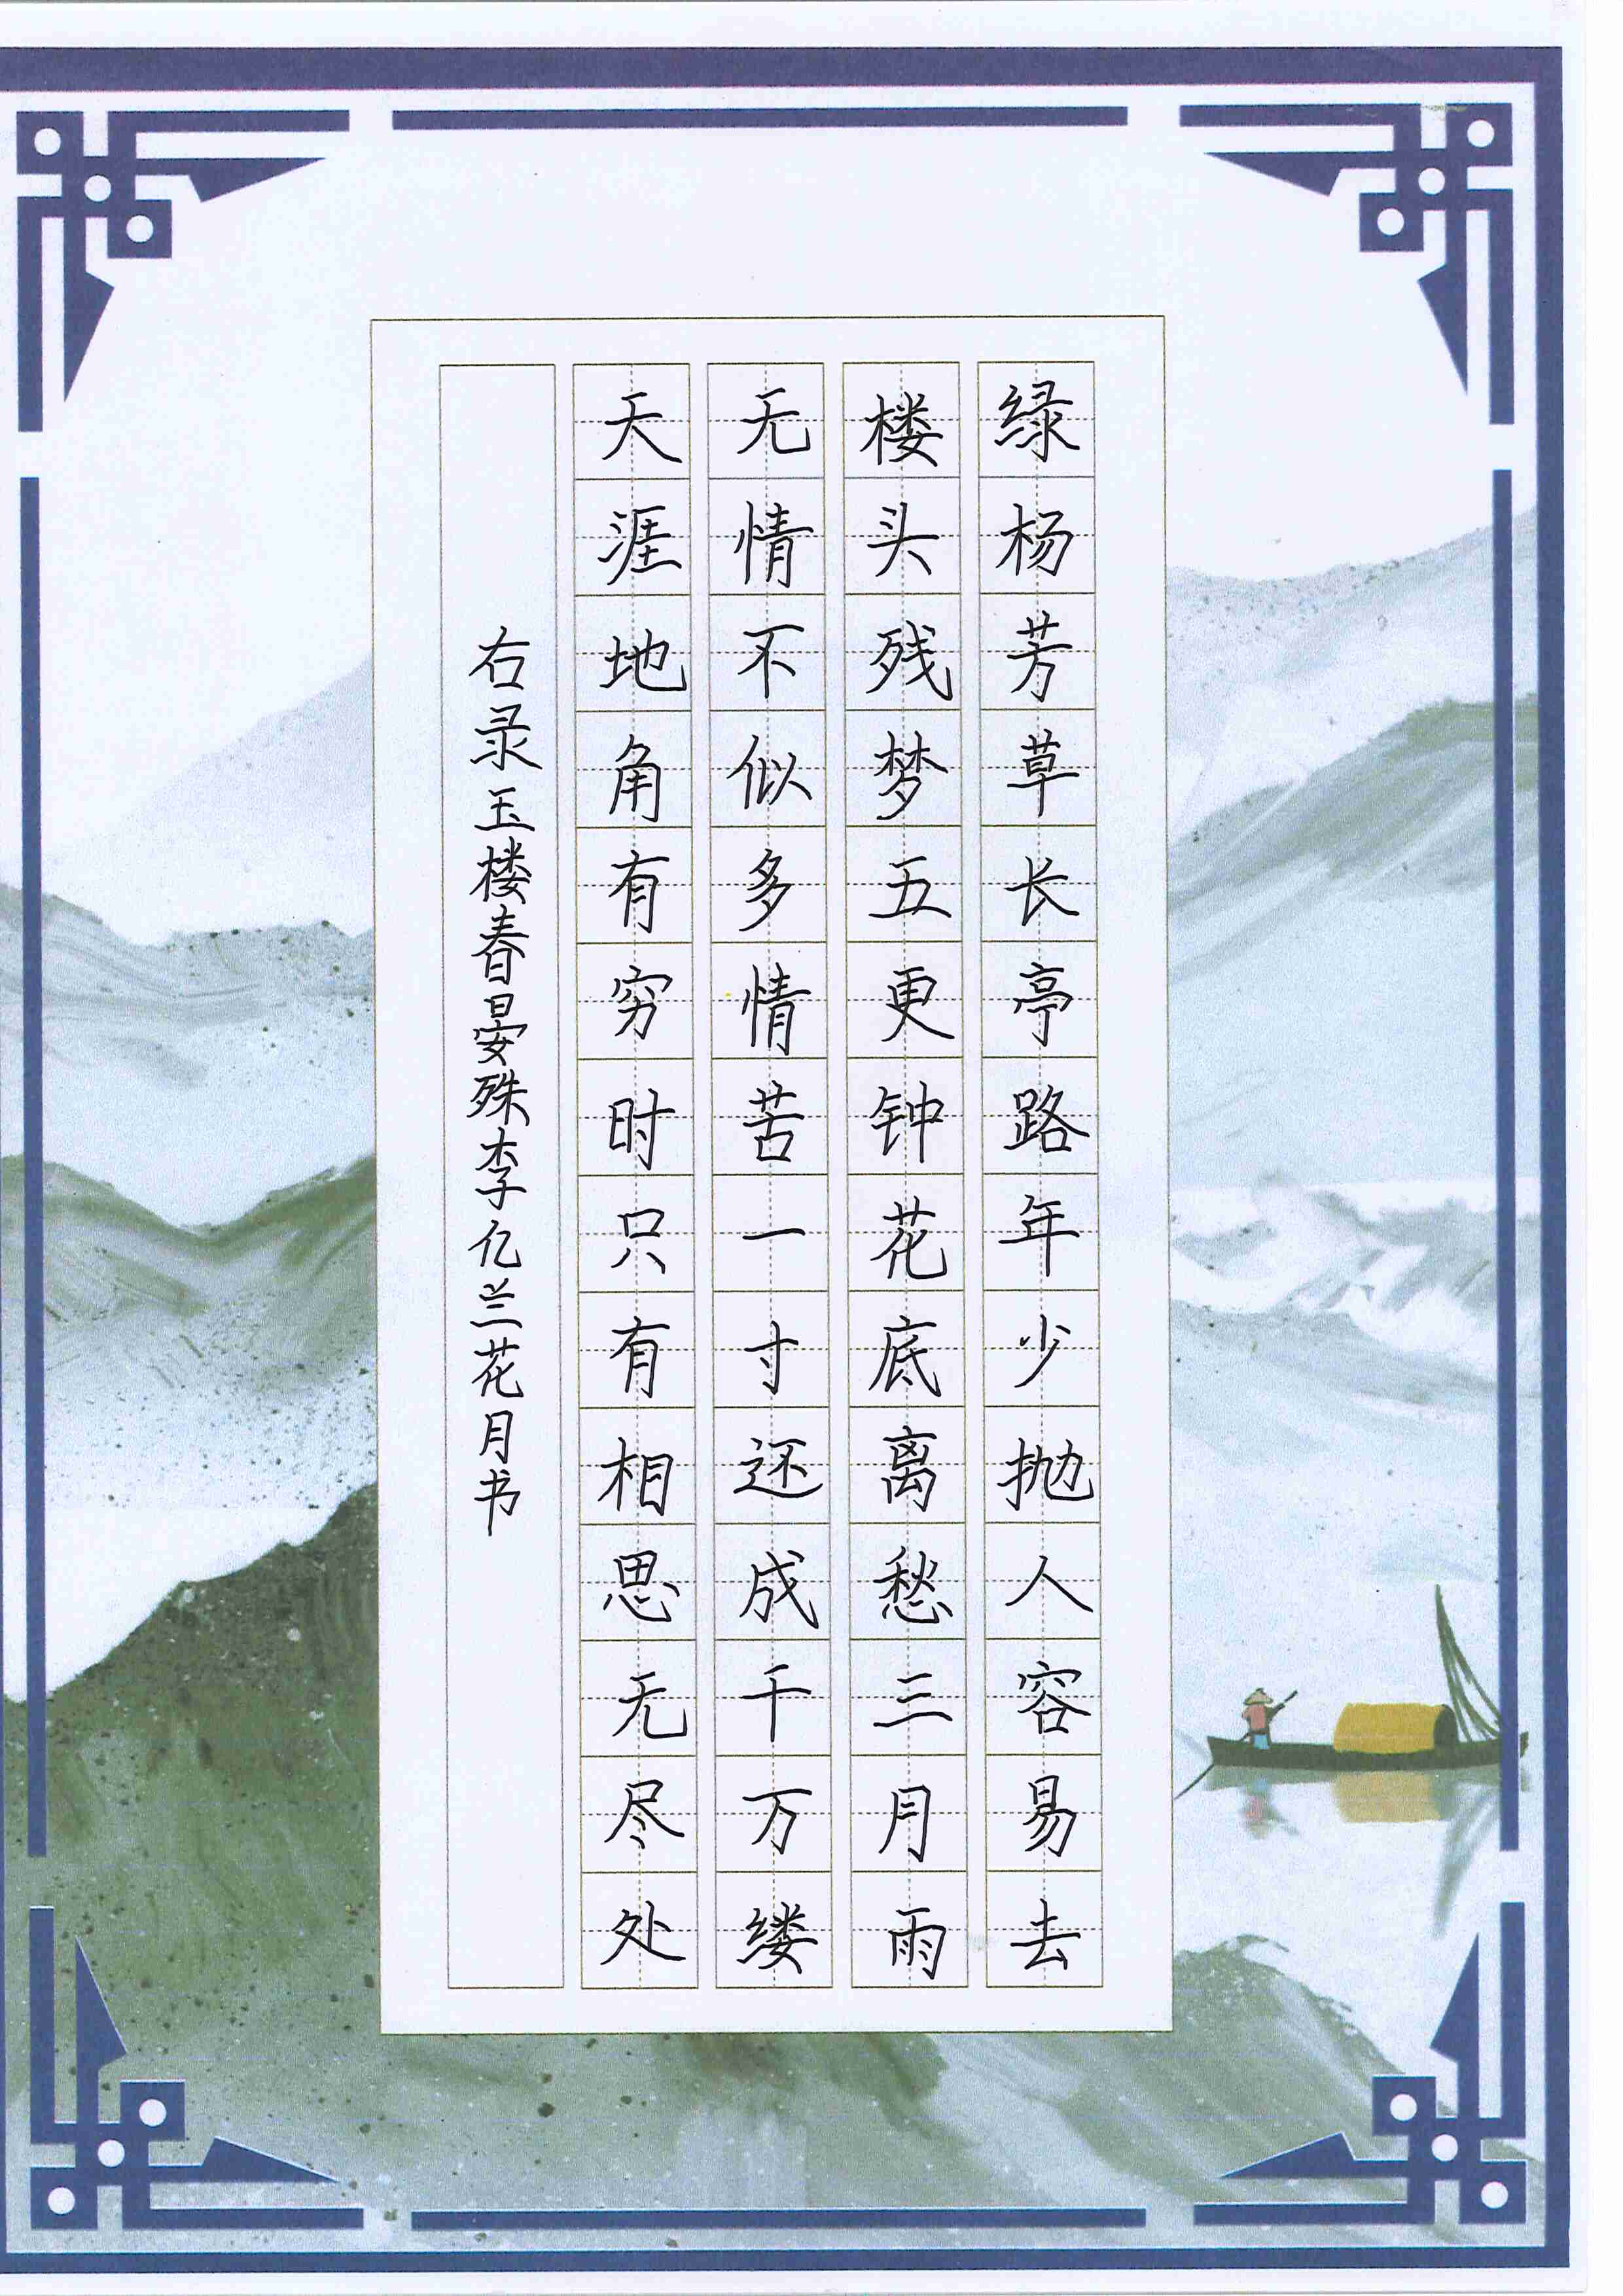 绿杨芳草长亭路年少抛人容易去
楼头残梦五更钟花底离愁三月雨
无情不似多情苦一寸还成千万缕
天涯地角有穷时只有相思无尽处
右录玉楼春晏殊李亿兰花月书